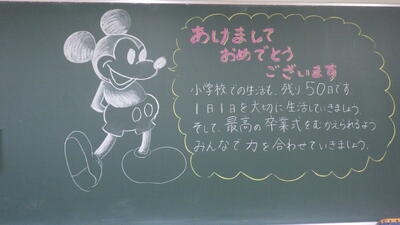 あけまして
おめでとう
ございます
小学校での生活も、残り50日です。
1日1日を大切に生活していきましょう
そして、最高の卒業式をむかえられるよう
みんなで力を合わせていきましょう。